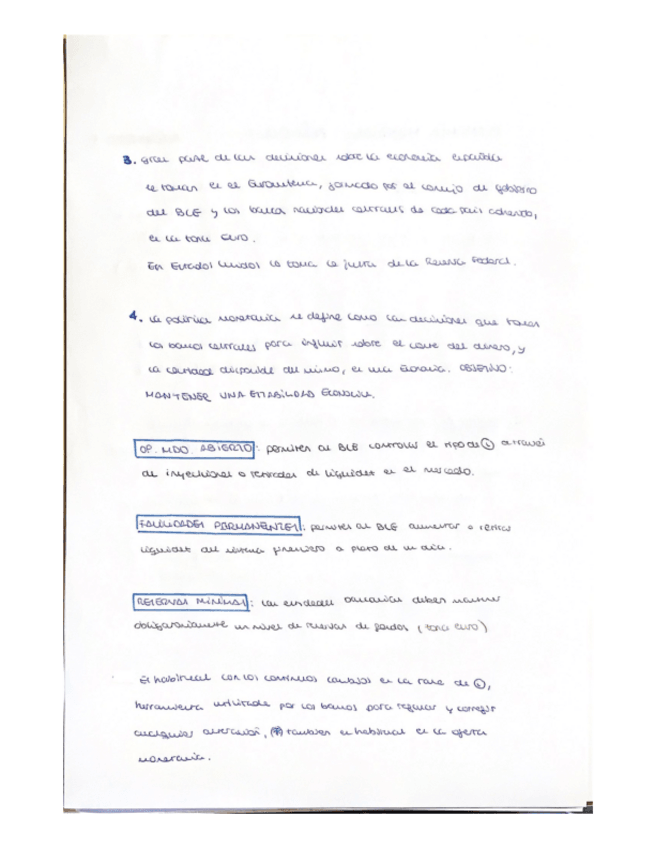 3. Gran parte de las decisiones sobre la economía española
se toman en el Eurosistema, formado por el consejo de gobierno
del BCE y los bancos nacionales centrales de cada país adherido,
en la zona euro.
En Estados Unidos la toma la junta de la Reserva Federal.
4. La política monetaria se define como las decisiones que toman
los bancos centrales para influir sobre el coste del dinero, y
la cantidad disponible del mismo, en una economía. OBJETIVO:
MANTENER UNA ESTABILIDAD ECONÓMICA.
OP. MDO. ABIERTO: permiten al BCE controlar el tipo de i a través
de inyecciones o retiradas de liquidez en el mercado.
FACILIDADES PERMANENTES: permiten al BCE aumentar o retirar
liquidez del sistema financiero a plazo de un día.
RESERVAS MÍNIMAS: las entidades bancarias deben mantener
obligatoriamente un nivel de reservas de fondos (zona euro)
Es habitual con los continuos cambios en la tasa de i,
herramienta utilizada por los bancos para regular y corregir
cualquier alteración, también es habitual en la oferta
monetaria.